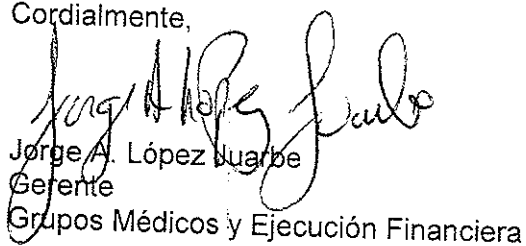 Cordialmente,
Jorge A López Juarbe
Jorge A. López Juarbe
Gerente
Grupos Médicos y Ejecución Financiera